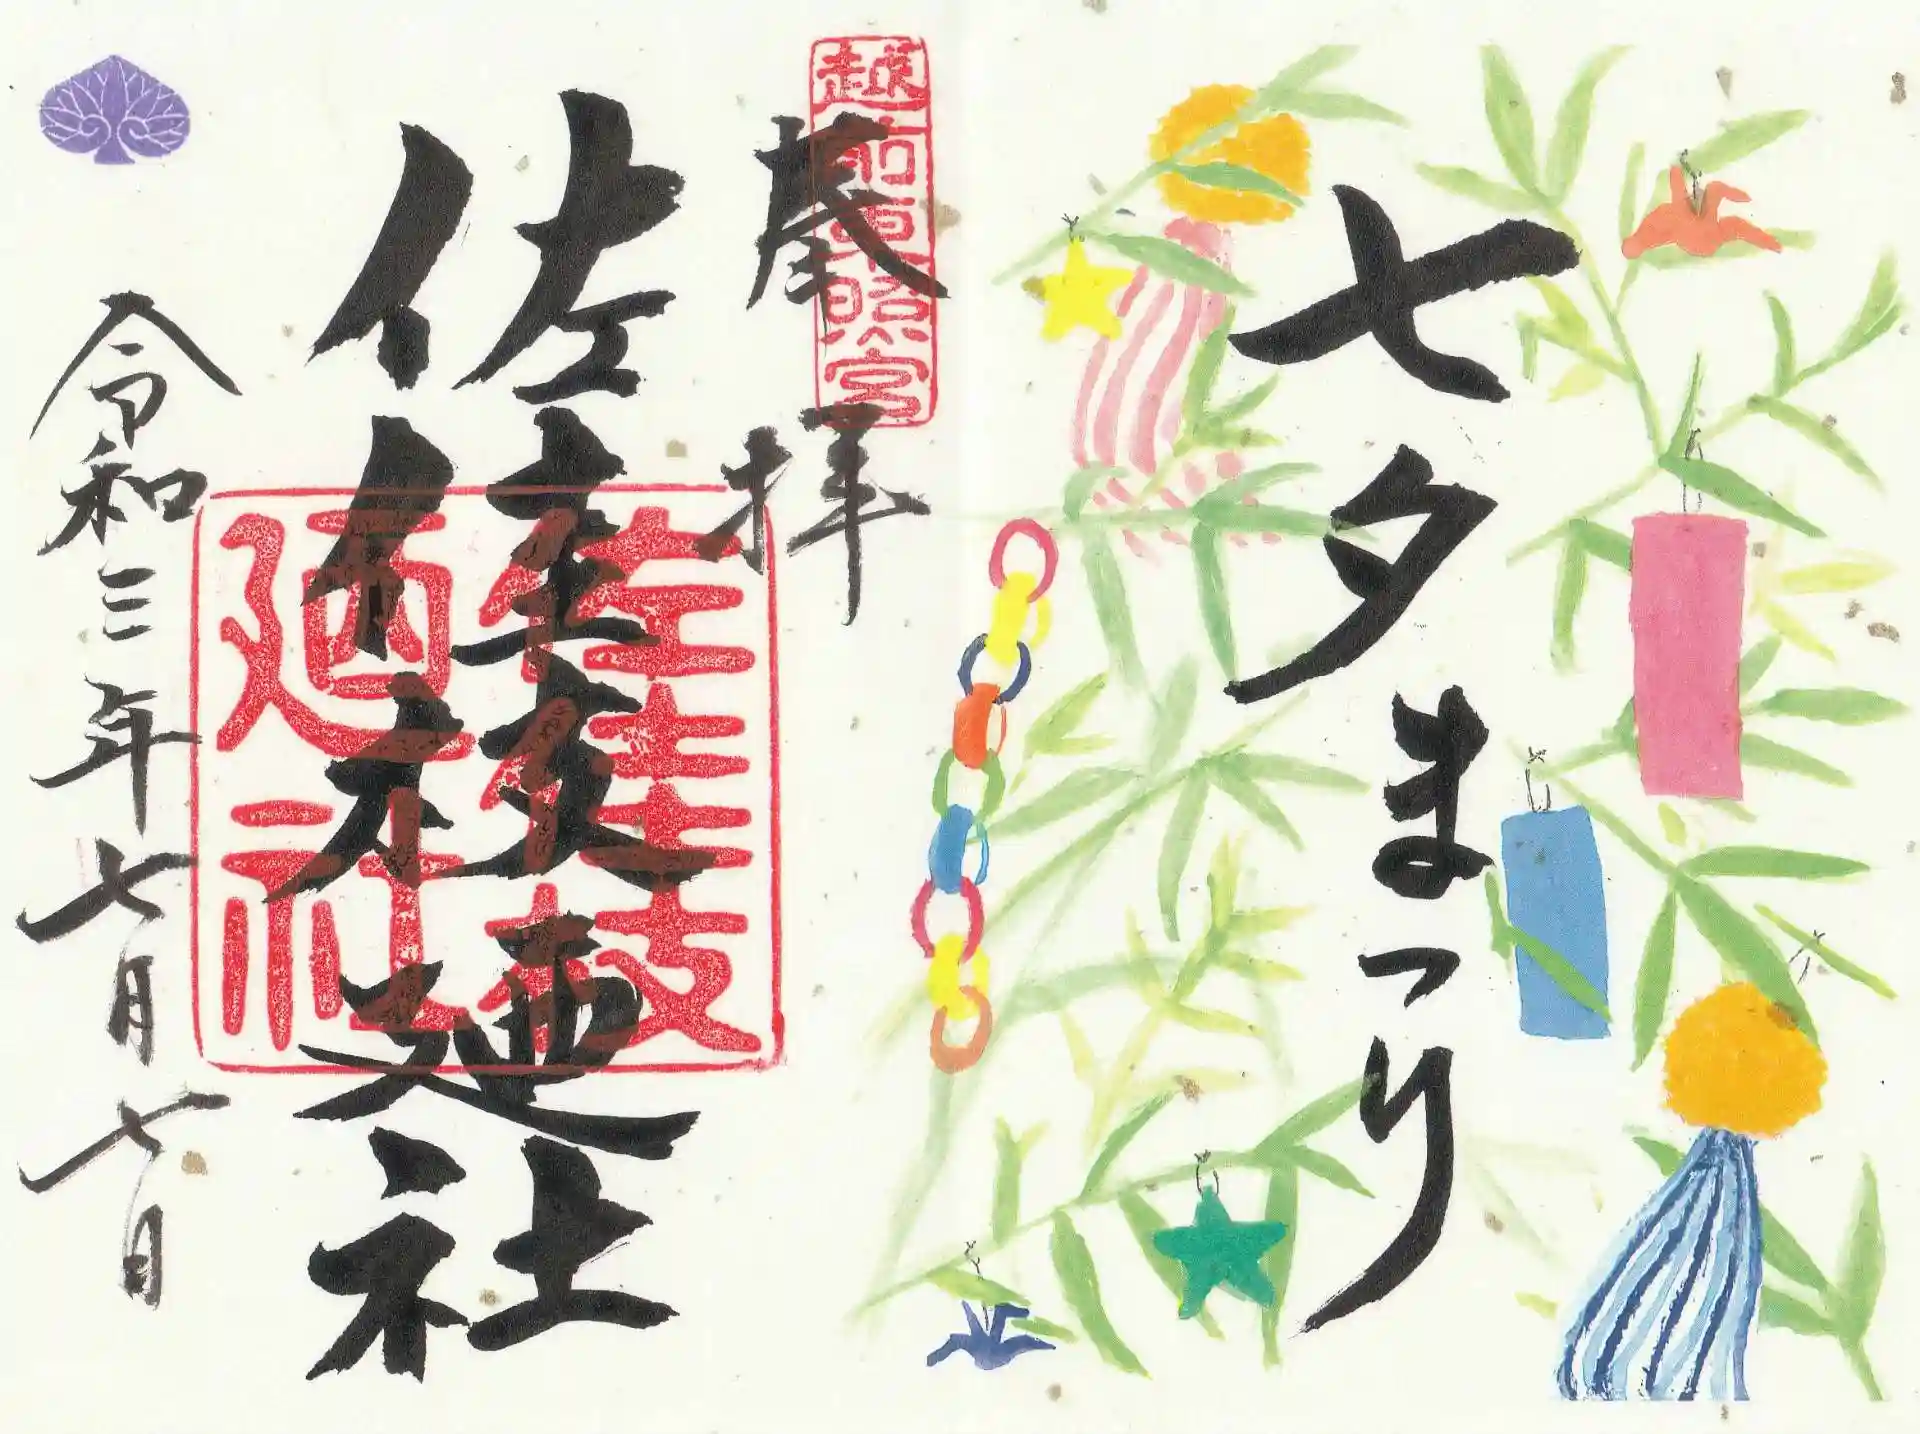 七夕まつり
奉拝
越前東照宮
佐佳枝廼社
佐佳枝廼社
令和三年七月七日